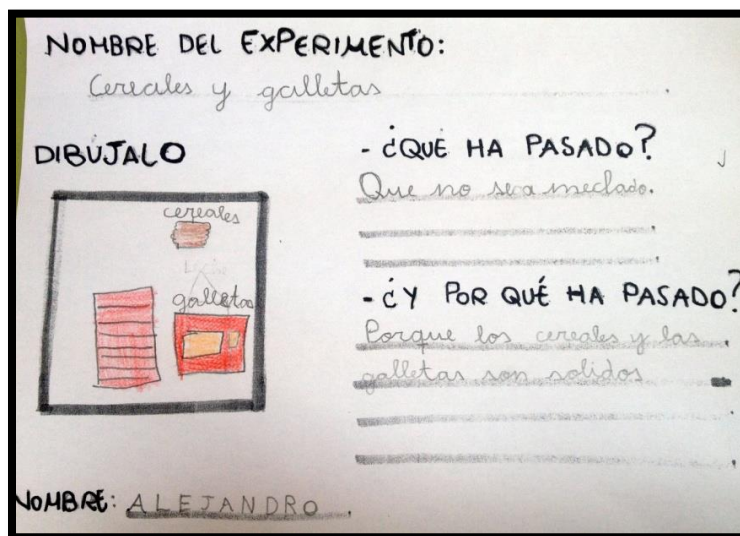 NOMBRE DEL EXPERIMENTO:
Cereales y galletas
DIBÚJALO
cereales
galletas
- ¿QUÉ HA PASADO?
Que no sea meclado.
- ¿Y POR QUÉ HA PASADO?
Porque los cereales y las
galletas son solidos
NOMBRE: ALEJANDRO.